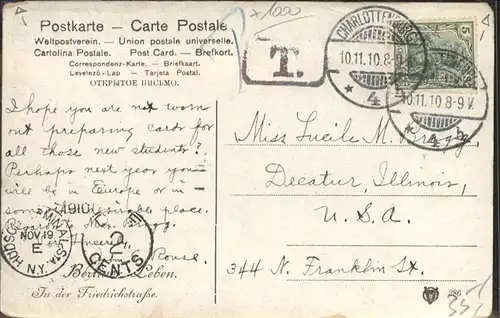 Postkarte – Carte Postale
Weltpostverein. – Union postale universelle.
Cartolina Postale. Post Card. – Brefkort.
Correspondenz-Karte. – Briefkaart.
Levelező-Lap – Tarjeta Postal.
ОТКРЫТОЕ ПИСЬМО.
x1000
T.
CHARLOTTENBURG
10.11.10.8-9 V.
* 4
5
10.11.10.8-9 V.
* 4 b
I hope you are not worn
out preparing cards for
all those new students?
Perhaps next year you
will be in Europe or in
some desirable place.
Regards to Mrs.
Sincerely
Rouse.
Miss Lucile M. Bragg
Decatur, Illinois,
U.S.A.
344 N. Franklin St.
HUDSON TERMINAL STA.
NOV 19
1910
E
N.Y.
2
CENTS
Leben.
In der Friedrichstraße.